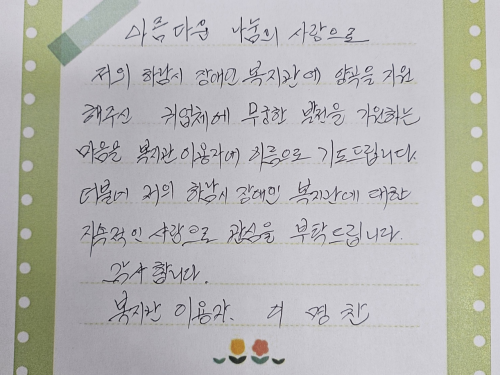 아름다운 나눔의 사랑으로
저의 하남시 장애인 복지관에 양곡을 지원
해주신 귀업체에 무궁한 발전을 기원하는
마음을 복지관 이용자에 이름으로 기도드립니다.
더불어 저의 하남시 장애인 복지관에 대한
지속적인 사랑으로 관심을 부탁드립니다.
감사합니다.
복지관 이용자. 영찬